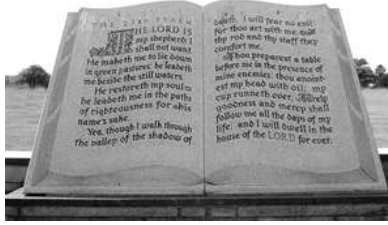 THE 23RD PSALM
THE LORD IS
my shepherd: I
shall not want.
He maketh me to lie down
in green pastures: he leadeth
me beside the still waters.
He restoreth my soul:
he leadeth me in the paths
of righteousness for his
name's sake.
Yea, though I walk through
the valley of the shadow of
death, I will fear no evil:
for thou art with me;
thy rod and thy staff they
comfort me.
Thou preparest a table
before me in the presence of
mine enemies: thou anointest
my head with oil; my
cup runneth over. Surely
goodness and mercy shall
follow me all the days of my
life: and I will dwell in the
house of the LORD for ever.